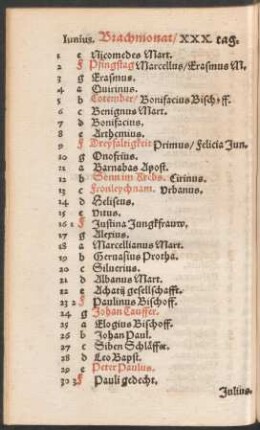 Iunius. Brachmonat/ XXX tag.
1 e Nicomedes Mart.
2 f Pfingstag Marcellus/Erasmus M.
3 g Erasmus.
4 a Quirinus.
5 b Cotember/ Bonifacius Bischoff.
6 c Benignus Mart.
7 d Bonifacius.
8 e Arthemius.
9 f Dreyfaltigkeit Primus/ Felicia Jun.
10 g Onofrius.
11 a Barnabas Apost.
12 b Sonn im Krebs. Cirinus.
13 c Fronleychnam. Vrbanus.
14 d Heliseus.
15 e Vitus.
16 f Justina Jungkfrauw.
17 g Alexius.
18 a Marcellianus Mart.
19 b Geruasius Protha.
20 c Siluerius.
21 d Albanus Mart.
22 e Achatij gesellschafft.
23 f Paulinus Bischoff.
24 g Johan Tauffer.
25 a Elogius Bischoff.
26 b Johan Paul.
27 c Siben Schläffer.
28 d Leo Bapst.
29 e Peter Paulus.
30 f Pauli gedecht.
Julius.